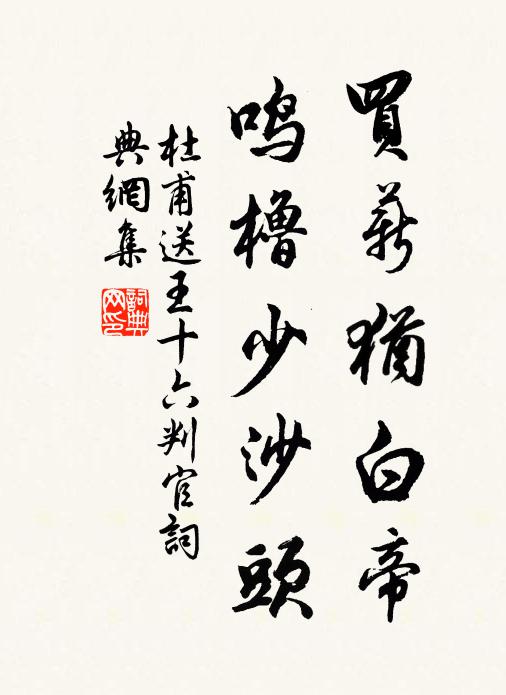 買薪猶白帝
鳴櫓少沙頭
杜甫送王十六判官詞
典網集
詞典
网印